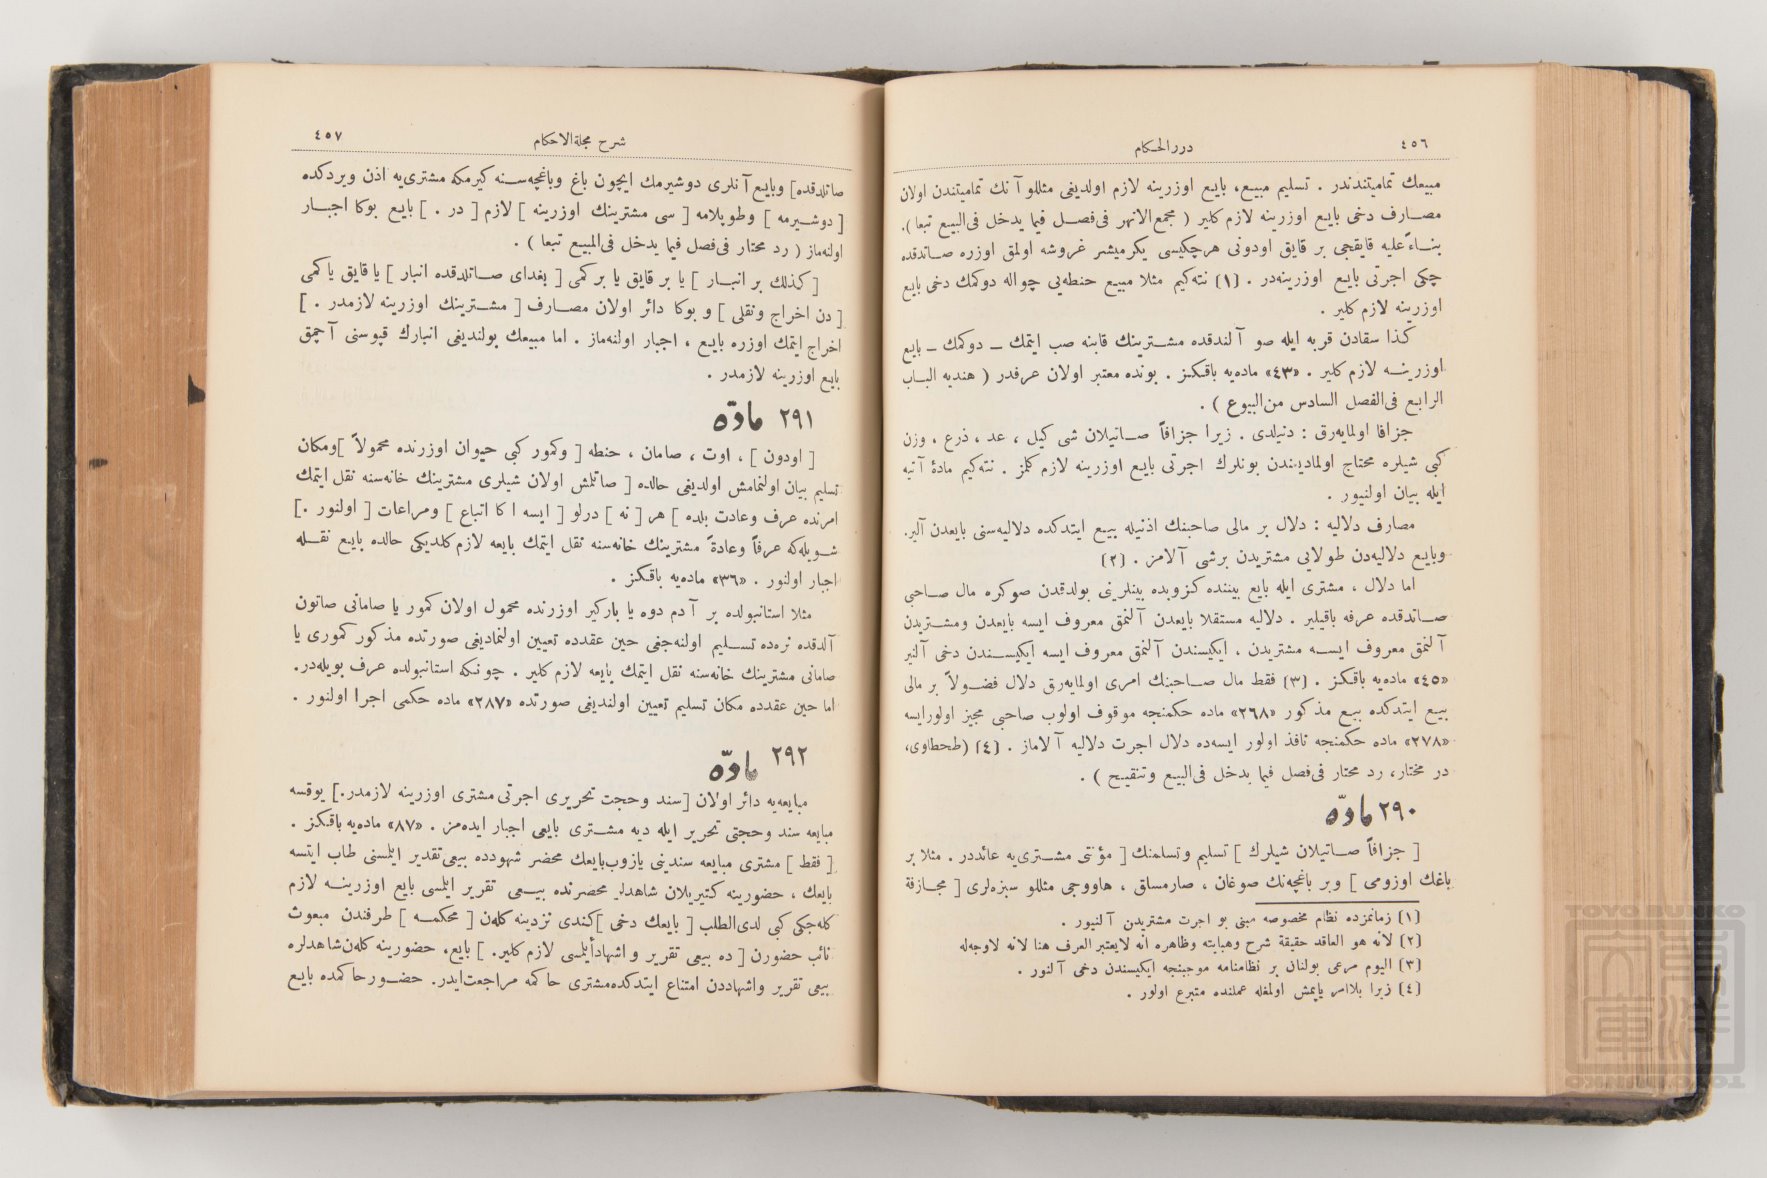 ٤٥٦
دررالحكام
مبيعك تماميتندندر . تسليم مبيع، بايع اوزرينه لازم اولديغى مثللو آنك تماميتندن اولان
مصارف دخى بايع اوزرينه لازم كلير ( مجمع الانهر فى فصل فيما يدخل فى البيع تبعا).
بناءً عليه قايقجى بر قايق اودونى هرچكيسى يكرميشر غروشه اولمق اوزره صاتدقده
چكى اجرتى بايع اوزرينه‌در . [١] نته‌كيم مثلا مبيع حنطه‌يى چواله دوكمك دخى بايع
اوزرينه لازم كلير .
كذا سقادن قربه ايله صو آلندقده مشترينك قابنه صب ايتمك ــ دوكمك ــ بايع
اوزرينه لازم كلير . «٤٣» ماده‌يه باقكز . بونده معتبر اولان عرفدر ( هنديه الباب
الرابع فى الفصل السادس من البيوع ) .
جزافا اولمايه‌رق : دنيلدى . زيرا جزافاً صاتيلان شى كيل ، عد ، ذرع ، وزن
كبى شيلره محتاج اولماديغندن بونلرك اجرتى بايع اوزرينه لازم كلمز . نته‌كيم مادۀ آتيه
ايله بيان اولنيور .
مصارف دلاليه : دلال بر مالى صاحبنك اذنيله بيع ايتدكده دلاليه‌سنى بايعدن آلير.
وبايع دلاليه‌دن طولايى مشتريدن برشى آلامز . [٢]
اما دلال ، مشترى ايله بايع بيننده كزوبده بينلرينى بولدقدن صوكره مال صاحبى
صاتدقده عرفه باقيلير . دلاليه مستقلا بايعدن آلنمق معروف ايسه بايعدن ومشتريدن
آلنمق معروف ايسه مشتريدن ، ايكيسندن آلنمق معروف ايسه ايكيسندن دخى آلنير
«٤٥» ماده‌يه باقكز . [٣] فقط مال صاحبنك امرى اولمايه‌رق دلال فضولاً بر مالى
بيع ايتدكده بيع مذكور «٣٦٨» ماده حكمنجه موقوف اولوب صاحبى مجيز اولورايسه
«٢٧٨» ماده حكمنجه نافذ اولور ايسه‌ده دلال اجرت دلاليه آلاماز . [٤] (طحطاوى،
در مختار، رد محتار فى فصل فيما يدخل فى البيع وتنقيح ) .
٢٩٠ مادّه
[ جزافاً صاتيلان شيلرك ] تسليم وتسلمنك [ مؤنتى مشترى‌يه عائددر . مثلا بر
باغك اوزومى ] وبر باغچه‌نك صوغان ، صارمساق ، هاووجى مثللو سبزه‌لرى [ مجازفة
[١] زمانمزده نظام مخصوصه مبنى بو اجرت مشتريدن آلنيور .
[٢] لانه هو العاقد حقيقة شرح وهبانيه وظاهره انه لايعتبر العرف هنا لانه لاوجه‌له
[٣] اليوم مرعى بولنان بر نظامنامه موجبنجه ايكيسندن دخى آلنور .
[٤] زيرا بلاامر ياپمش اولمغله عملنده متبرع اولور .
شرح مجلة الاحكام
٤٥٧
صاتلدقده] وبايع آنلرى دوشيرمك ايچون باغ وباغچه‌سنه كيرمكه مشترى‌يه اذن ويردكده
[ دوشيرمه ] وطوپلامه [ سى مشترينك اوزرينه ] لازم [ در . ] بايع بوكا اجبار
اولنه‌ماز ( رد محتار فى فصل فيما يدخل فى المبيع تبعا ) .
[ كذلك بر انبار ] يا بر قايق يا بر كمى [ بغداى صاتلدقده انبار ] يا قايق ياكمى
[ دن اخراج ونقلى ] و بوكا دائر اولان مصارف [ مشترينك اوزرينه لازمدر . ]
اخراج ايتمك اوزره بايع ، اجبار اولنه‌ماز . اما مبيعك بولنديغى انبارك قپوسنى آچمق
بايع اوزرينه لازمدر .
٢٩١ مادّه
[ اودون ] ، اوت ، صامان ، حنطه [ وكمور كبى حيوان اوزرنده محمولاً ]ومكان
تسليم بيان اولنمامش اولديغى حالده [ صاتلمش اولان شيلرى مشترينك خانه‌سنه نقل ايتمك
امرنده عرف وعادت بلده ] هر [ نه ] درلو [ ايسه اكا اتباع ] ومراعات [ اولنور .]
شويله‌كه عرفاً وعادةً مشترينك خانه‌سنه نقل ايتمك بايعه لازم كلديكى حالده بايع نقله
اجبار اولنور . «٣٦» ماده‌يه باقكز .
مثلا استانبولده بر آدم دوه يا باركير اوزرنده محمول اولان كمور يا صامانى صاتون
آلدقده نره‌ده تسليم اولنه‌جغى حين عقدده تعيين اولنماديغى صورتده مذكور كمورى يا
صامانى مشترينك خانه‌سنه نقل ايتمك بايعه لازم كلير . چونكه استانبولده عرف بويله‌در.
اما حين عقدده مكان تسليم تعيين اولنديغى صورتده «٢٨٧» ماده حكمى اجرا اولنور .
٢٩٢ مادّه
مبايعه‌يه دائر اولان [سند وحجت تحريرى اجرتى مشترى اوزرينه لازمدر.] يوقسه
مبايعه سند وحجتى تحرير ايله ديه مشترى بايعى اجبار ايده‌مز . «٨٧» ماده‌يه باقكز .
[ فقط ] مشترى مبايعه سندينى يازوب بايعك محضر شهودده بيعى تقدير ايلمسنى طلب ايتسه
بايعك ، حضورينه كتيريلان شاهدلر محضرنده بيعى تقرير ايلمسى بايع اوزرينه لازم
كله‌جكى كبى لدى الطلب [ بايعك دخى ]كندى نزدينه كلەن [ محكمه ] طرفندن مبعوث
نائب حضورن [ ده بيعى تقرير و اشهادأيلمسى لازم كلير. ] بايع، حضورينه كلەن شاهدلره
بيعى تقرير واشهاددن امتناع ايتدكده‌مشترى حاكمه مراجعت‌ايدر. حضورحاكمده بايع